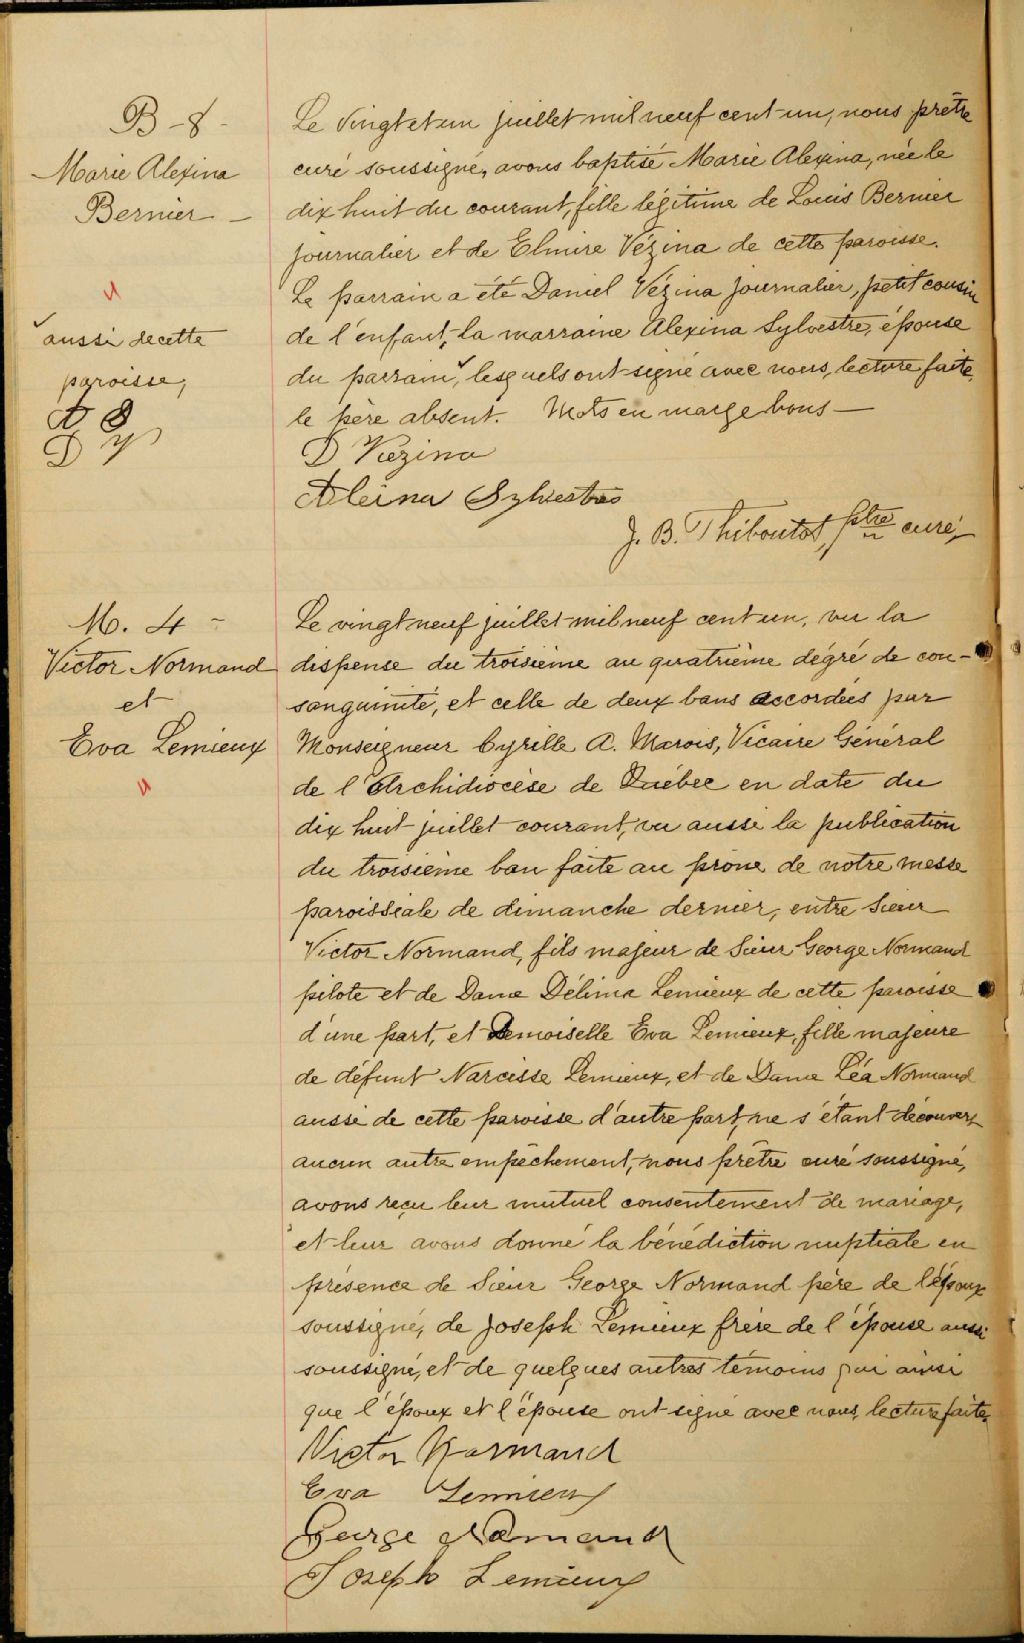 B - 8 -
Marie Alexina
Bernier -
aussi de cette
paroisse,
A S
D V
Le vingt et un juillet mil neuf cent un, nous prêtre
curé soussigné, avons baptisé Marie Alexina, née le
dix huit du courant, fille légitime de Louis Bernier
journalier et de Elmire Vézina de cette paroisse.
Le parrain a été Daniel Vézina journalier, petit cousin
de l'enfant, la marraine Alexina Sylvestre, épouse
du parrain, lesquels ont signé avec nous, lecture faite,
le père absent. Mots en marge bons -
D Vezina
Alcina Sylvestre
J. B. Thiboutot, ptre curé,
M. 4 -
Victor Normand
et
Eva Lemieux
Le vingt neuf juillet mil neuf cent un, vu la
dispense du troisième au quatrième dégré de con-
sanguinité, et celle de deux bans accordées par
Monseigneur Cyrille A. Marois, Vicaire Général
de l'Archidiocèse de Québec en date du
dix huit juillet courant, vu aussi la publication
du troisième ban faite au prône de notre messe
paroissiale de dimanche dernier, entre Sieur
Victor Normand, fils majeur de Sieur George Normand
pilote et de Dame Délima Lemieux de cette paroisse
d'une part, et Demoiselle Eva Lemieux, fille majeure
de défunt Narcisse Lemieux, et de Dame Léa Normand
aussi de cette paroisse d'autre part, ne s'étant découvert
aucun autre empêchement, nous prêtre curé soussigné,
avons reçu leur mutuel consentement de mariage,
et leur avons donné la bénédiction nuptiale en
présence de Sieur George Normand père de l'époux
soussigné, de Joseph Lemieux frère de l'épouse aussi
soussigné, et de quelques autres témoins qui ainsi
que l'époux et l'épouse ont signé avec nous, lecture faite.
Victor Normand
Eva Lemieux
George Normand
Joseph Lemieux